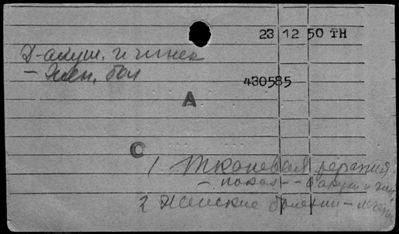 23 12 50 TH
Д-акуш. и гинек
- Жен. бол
430585
А
С
1 Тканевая терапия
- показ -- в акуш и гин
2 Женские болезни - лечение